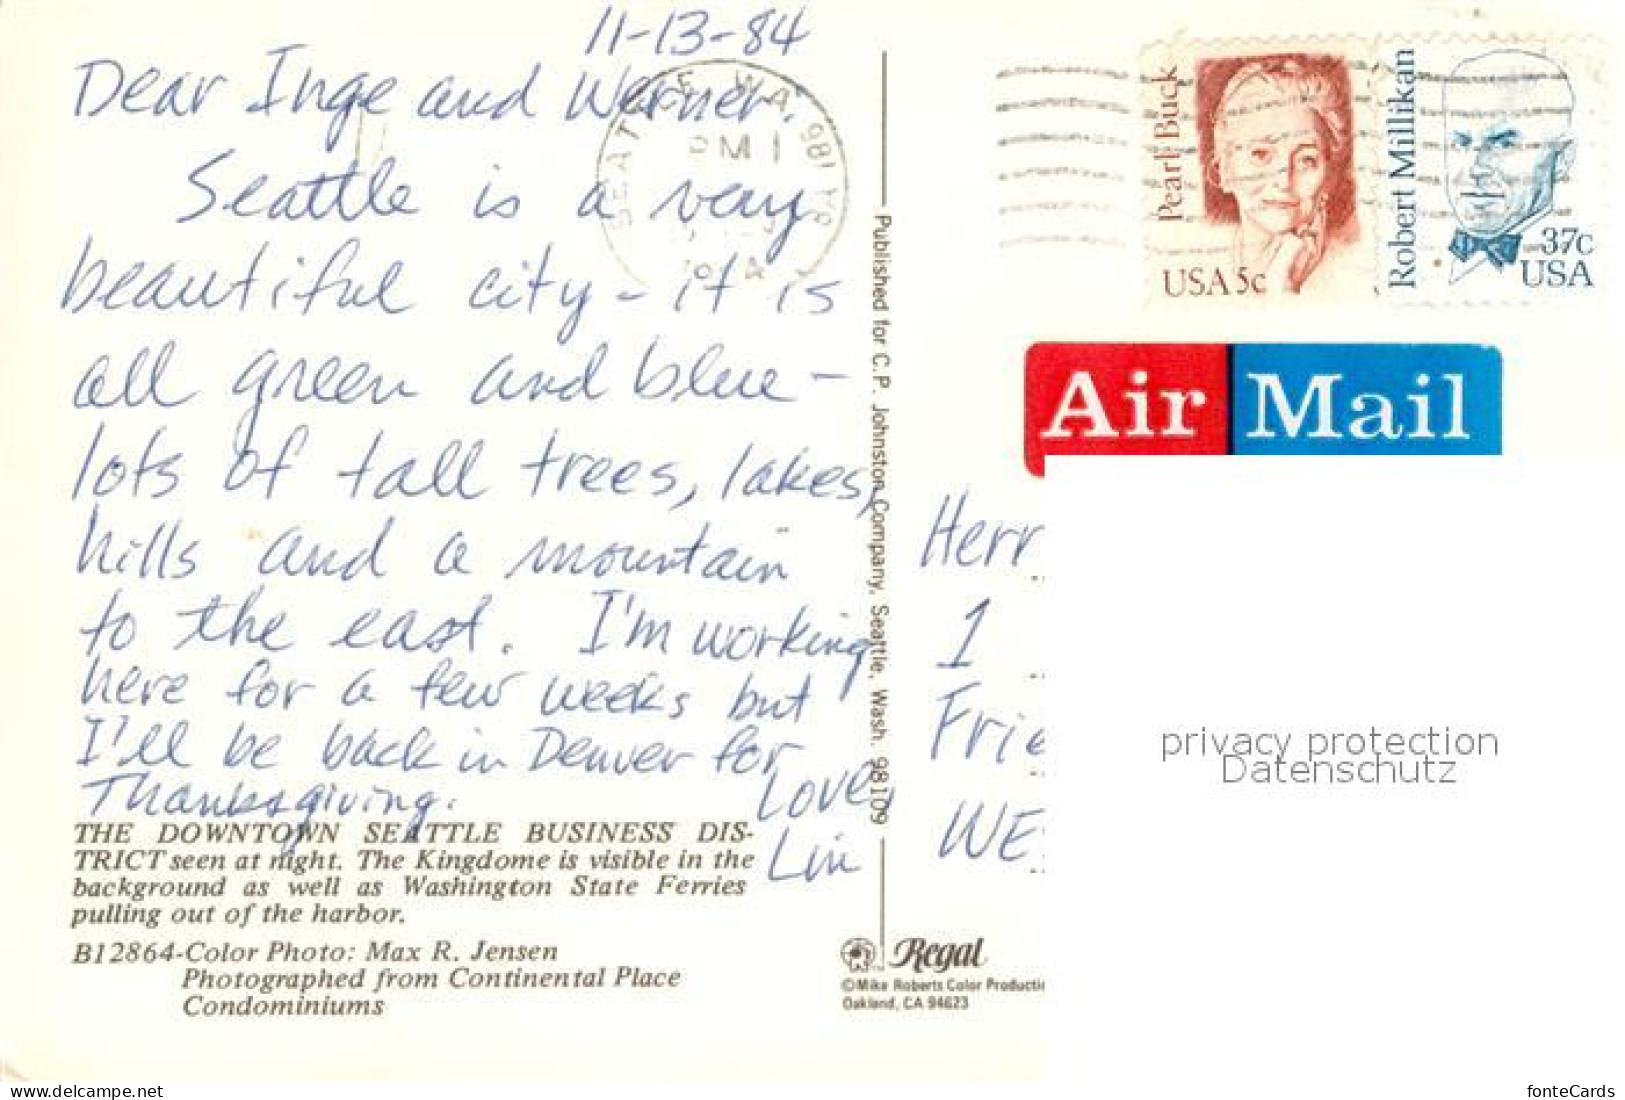 11-13-84
Dear Inge and Werner.
Seattle is a very
beautiful city - it is
all green and blue -
lots of tall trees, lakes,
hills and a mountain
to the east. I'm working
here for a few weeks but
I'll be back in Denver for
Thanksgiving.
Love,
Lin
THE DOWNTOWN SEATTLE BUSINESS DIS-
TRICT seen at night. The Kingdome is visible in the
background as well as Washington State Ferries
pulling out of the harbor.
B12864-Color Photo: Max R. Jensen
Photographed from Continental Place
Condominiums
SEATTLE WA 981
PM
Published for C. P. Johnston Company, Seattle, Wash. 98109
Regal
©Mike Roberts Color Producti
Oakland, CA 94623
Pearl Buck
USA 5c
Robert Millikan
37c
USA
Air Mail
Herr
1
Frie
WE
privacy protection
Datenschutz
www.delcampe.net
fonteCards